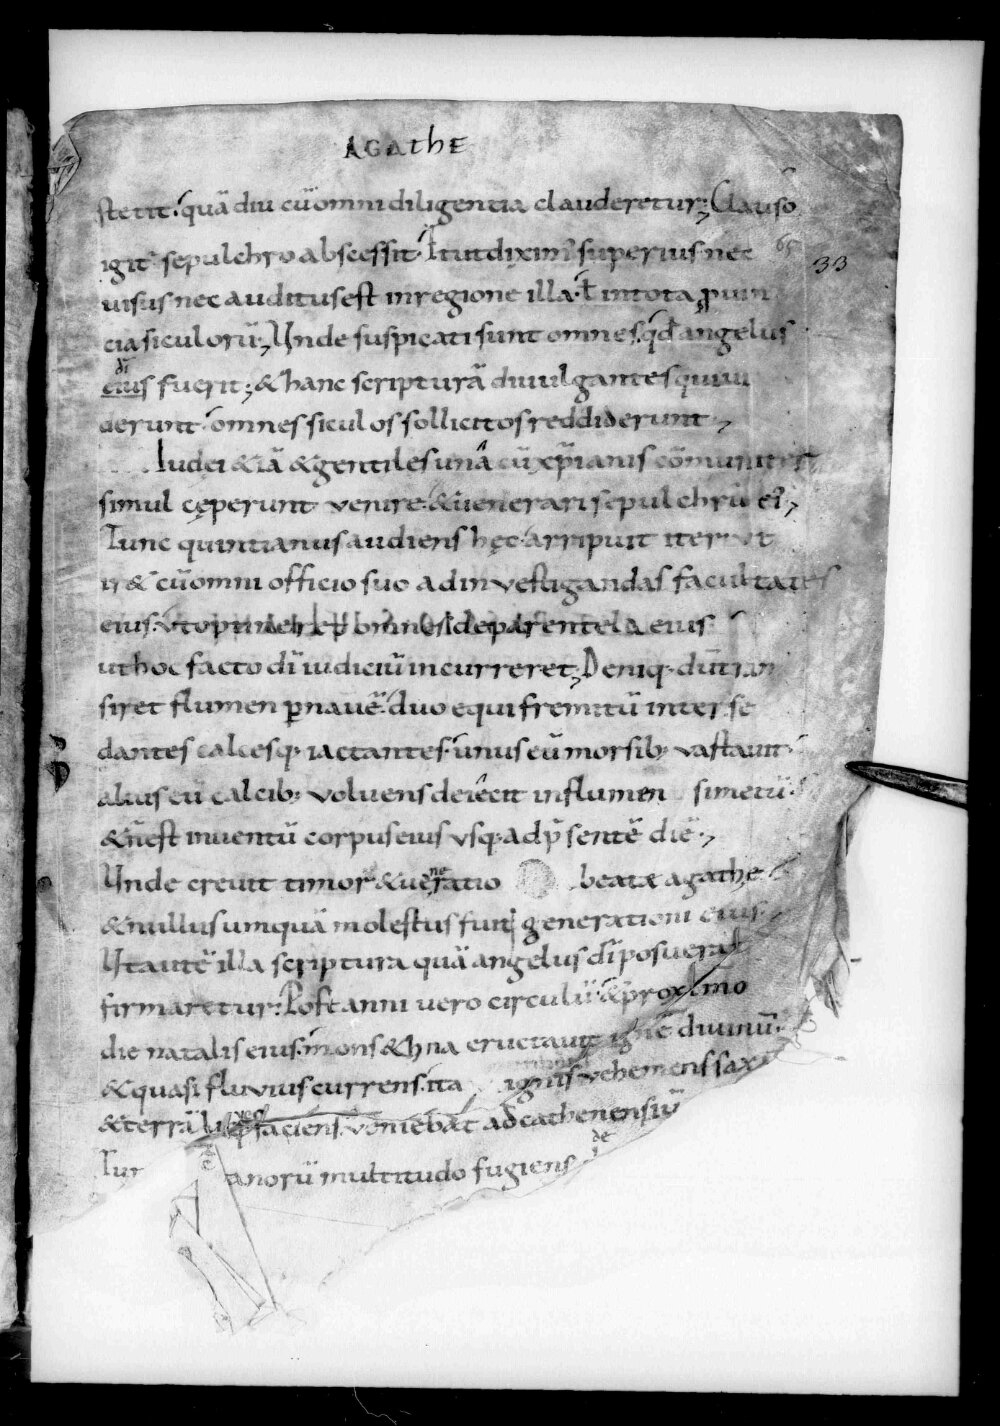 AGATHE
stetit. quā diu cū omni diligentia clauderetur; Clauso
igit᷒ sepulchro abscessit. Et ut diximꝰ superius nec
65
33
uisus nec auditus est in regione illa. ł in tota ꝓuin
cia siculorū; Unde suspicati sunt omnes. qđ angelus
dī
eius fuerit; & hanc scripturā diuulgantes qui ui
derunt. omnes siculos sollicitos reddiderunt;
Iudei &iā & gentiles unā cū xp̄ianis cōmuniter
simul cęperunt venire. & uenerari sepulchrū eiꝰ;
Tunc quintianus audiens hęc. arripuit iter. vt
ir& cū omni officio suo ad investigandas facultates
eius. vt omnes de parentela eius
ut hoc facto dī iudiciū incurreret; Deniq· dū tran
siret flumen ꝑ nauē. duo equi fremitū inter se
dantes calcesq· iactantes. unus eū morsib; vastauit.
alius eū calcib; voluens deiecit in flumen simetū.
& n̄ est inuentū corpus eius vsq· ad p̄sentē diē;
ne
Unde creuit timor & ueratio beatæ agathę
& nullus umquā molestus fuit generationi eius.
Ut autē illa scriptura quā angelus dī posuerat
firmaretur: Post anni uero circulū. & proximo
die natalis eius. mons &hna eructauit ignē diuinū.
& quasi fluvius currens. ita ignis vehemens saxa
& terrā faciens. veniebat ad cathenensiū
de
Tu anorū multitudo fugiens